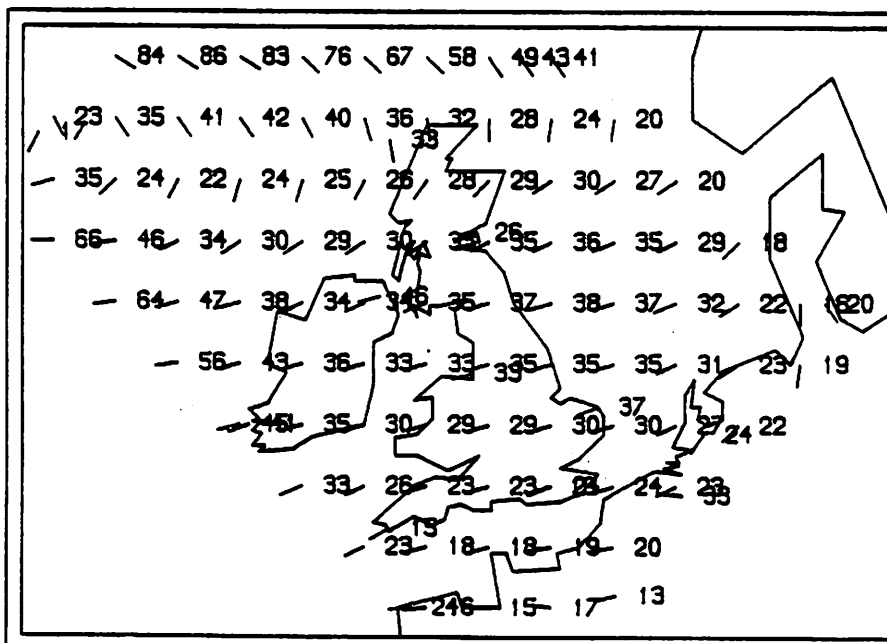 84 86 83 76 67 58 49 43 41
23 35 41 42 40 36 32 28 24 20
33
35 24 22 24 25 26 28 29 30 27 20
26
66 46 34 30 29 30 35 36 35 29 18
64 47 38 34 35 37 38 37 32 22 20
56 43 36 33 33 35 35 35 31 23 19
37
35 30 29 29 30 30 27 22
24
33 26 23 23 24 23
33
15
23 18 18 19 20
13
15 17